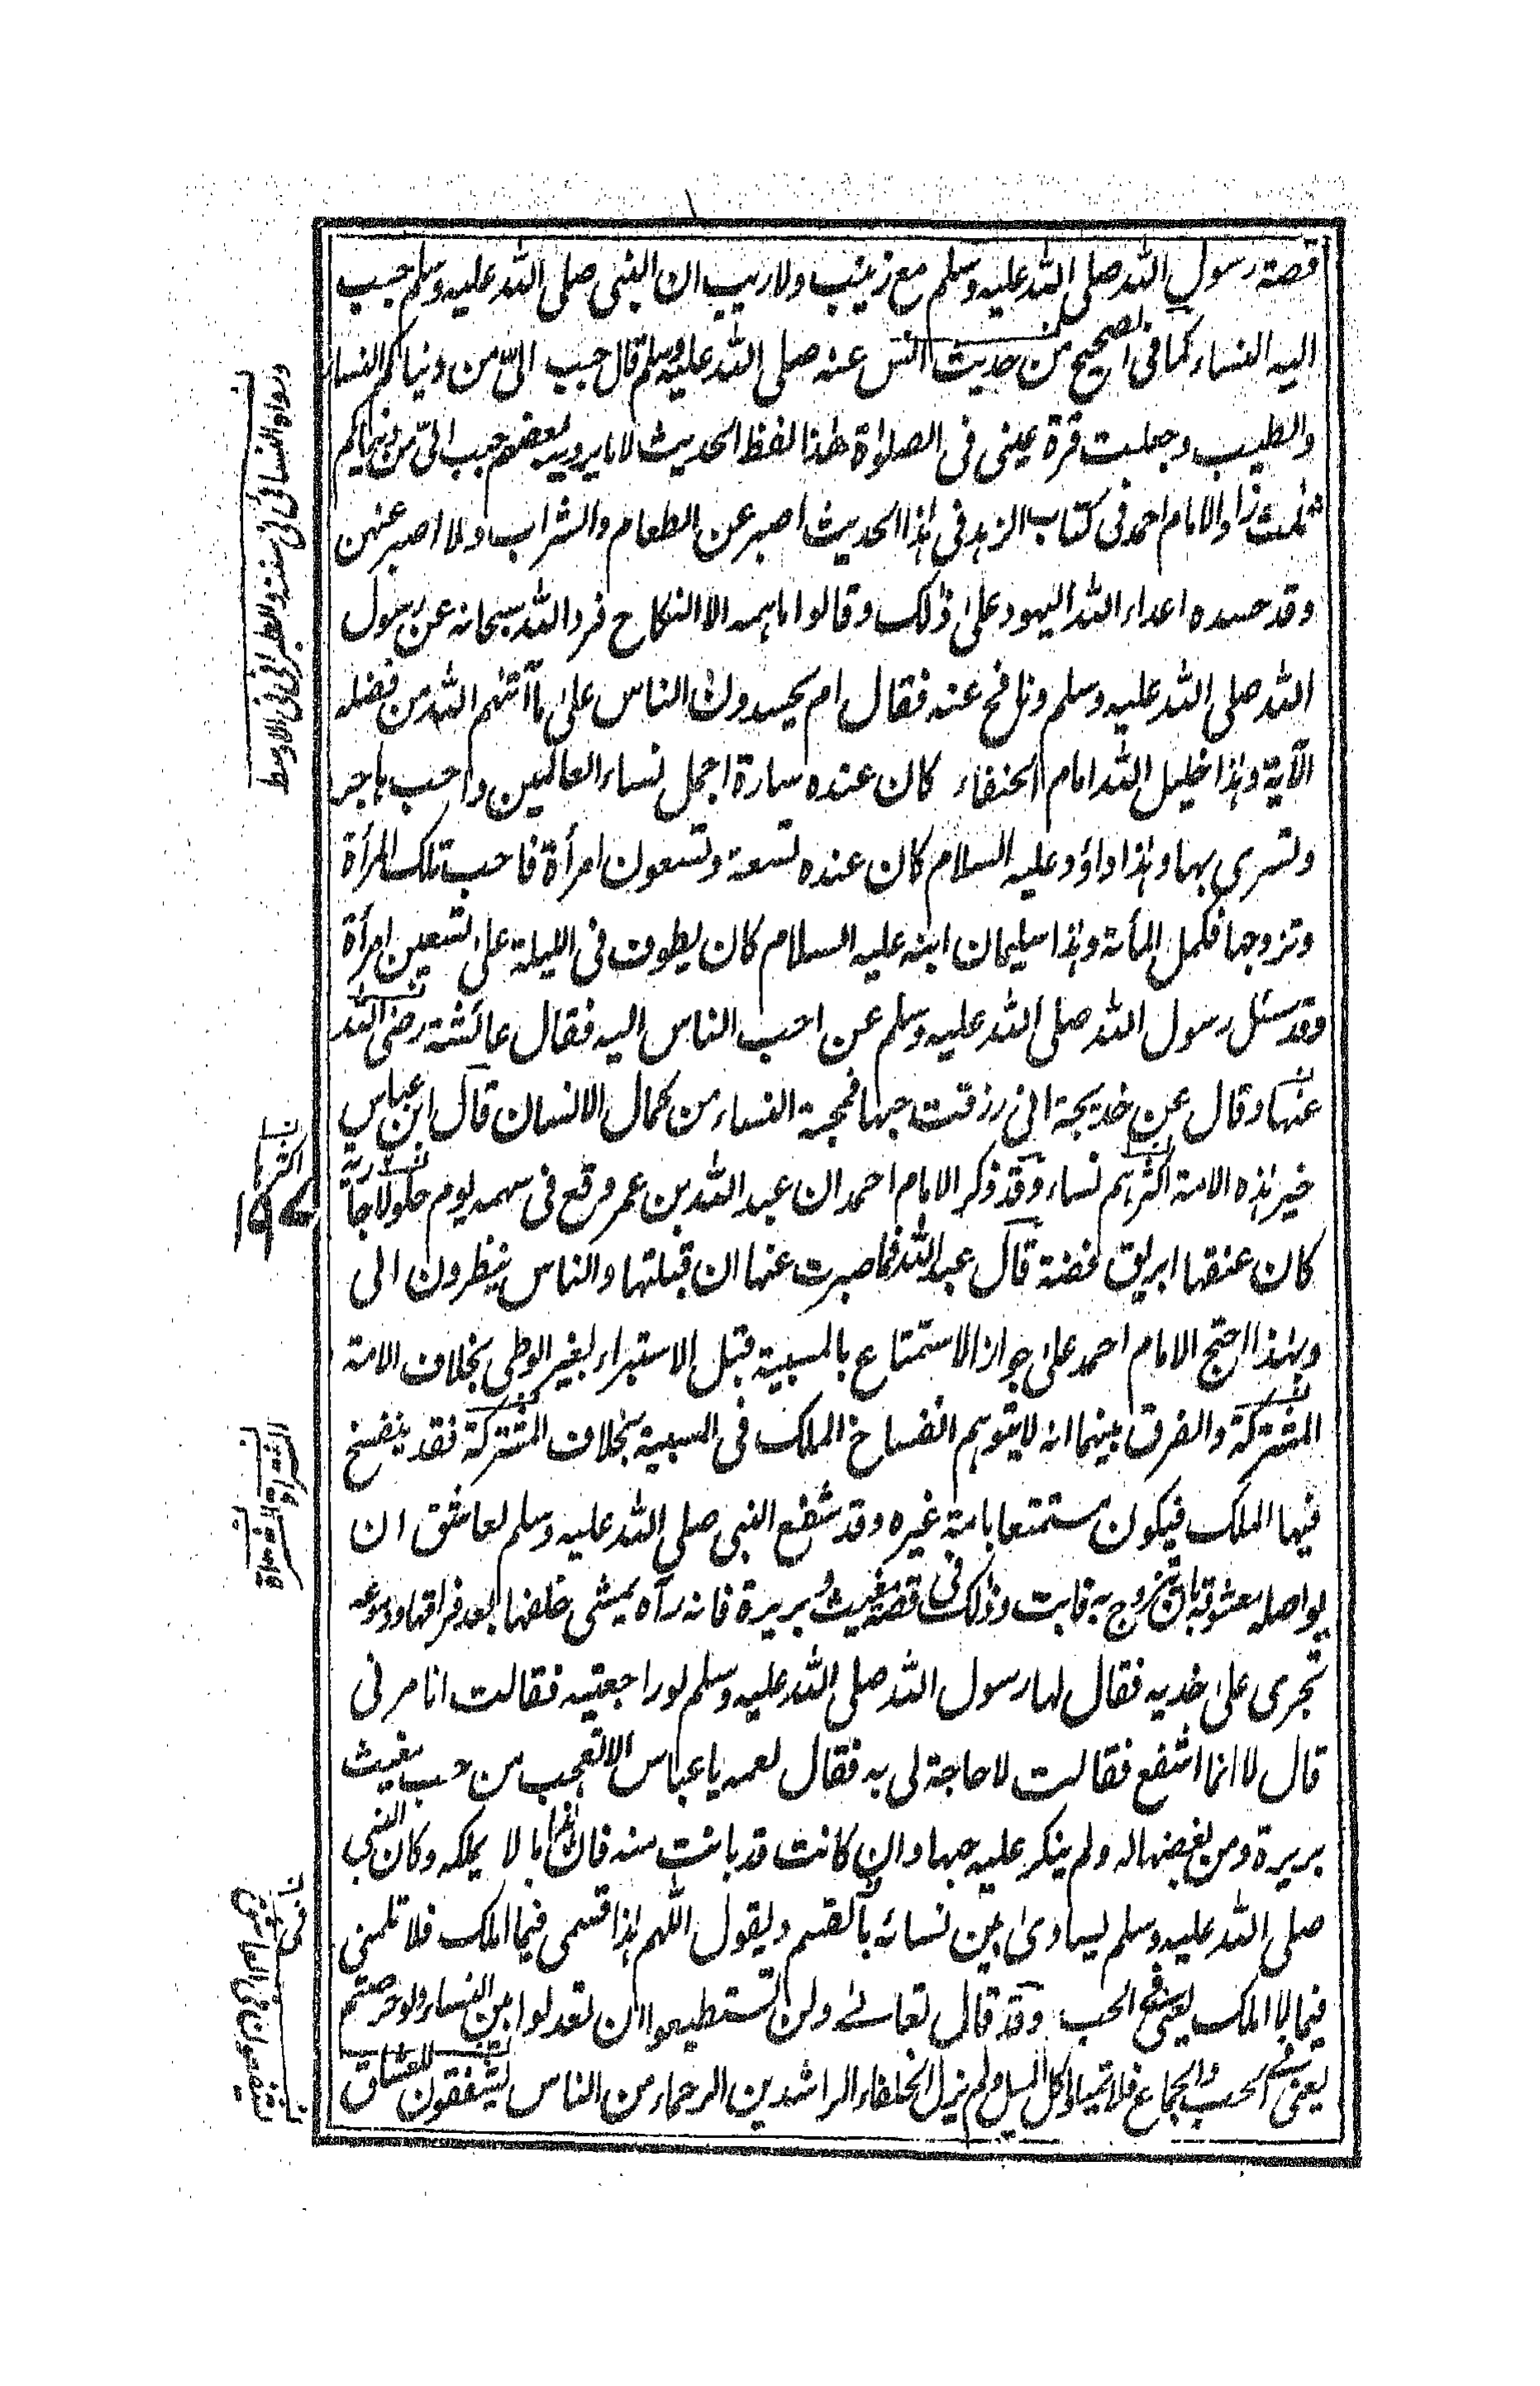 قصة رسول الله صلى الله عليه وسلم مع زينب ولاريب ان النبي صلى الله عليه وسلم حبب
اليه النساء كما فى الصحيح من حديث انس عنه صلى الله عليه وسلم قال حبب الىّ من دنياكم النساء
والطيب وجعلت قرة عينى فى الصلوٰة هذا لفظ الحديث لا ما يرويه بعضهم حبب الىّ من دنياكم
ثلث زاد الامام احمد فى كتاب الزهد فى هذا الحديث اصبر عن الطعام والشراب ولا اصبر عنهن
وقد حسده اعداء الله اليهود علىٰ ذلك وقالوا ما همه الا النكاح فرد الله سبحانه عن رسول
الله صلى الله عليه وسلم ونافح عنه فقال ام يحسدون الناس علىٰ ما آتٰهم الله من فضله
الآية وهذا خليل الله امام الحنفاء كان عنده سارة اجمل نساء العالمين واحب هاجر
وتسرى بها وهذا داؤد عليه السلام كان عنده تسعة وتسعون امرأة فاحب تلك المرأة
وتزوجها فكمل المأئة وهذا سليمان ابنه عليه السلام كان يطوف فى الليلة علىٰ تسعين امرأة
وقد سئل رسول الله صلى الله عليه وسلم عن احب الناس اليه فقال عائشة رضى الله
عنها وقال عن خديجة انى رزقت حبها فمحبة النساء من كمال الانسان قال ابن عباس
خير هذه الامة اكثرهم نساء وقد ذكر الامام احمد ان عبد الله بن عمر وقع فى سهمه يوم جلولاء جارية
كان عنقها ابريق فضة قال عبد الله فما صبرت عنها ان قبلتها والناس ينظرون الى
وبهذا احتج الامام احمد علىٰ جواز الاستمتاع بالمسبية قبل الاستبراء بغير الوطى بخلاف الامة
المشتركة والفرق بينهما انه لا يتوهم انفساخ الملك فى المسبية بخلاف المشتركة فقد ينفسخ
فيها الملك فيكون مستمتعا بامة غيره وقد شفع النبى صلى الله عليه وسلم لعاشق ان
يواصله معشوقه بان تتزوج به فابت وذلك فى قصة مغيث و بريرة فانه رآه يمشى خلفها بعد فراقها ودموعه
تجرى علىٰ خديه فقال لها رسول الله صلى الله عليه وسلم لو راجعتيه فقالت اتامرنى
قال لا انما اشفع فقالت لا حاجة لى به فقال لعمه يا عباس الا تعجب من حب مغيث
بريرة ومن بغضها له ولم ينكر عليه حبها وان كانت قد بانت منه فان هذا ما لا يملكه وكان النبى
صلى الله عليه وسلم يساوى بين نسائه بالقسم ويقول اللهم هذا قسمى فيما املك فلا تلمنى
فيما لا املك يعنى فى الحب وقد قال تعالىٰ ولن تستطيعوا ان تعدلوا بين النساء ولو حرصتم
يعنى فى الحب والجماع فلا تميلوا كل الميل ولم يزل الخلفاء الراشدين الرحماء من الناس يشفقون للعشاق
ورواه النسائى فى سننه والطبرانى فى الاوسط
اكثرها
١٩٤